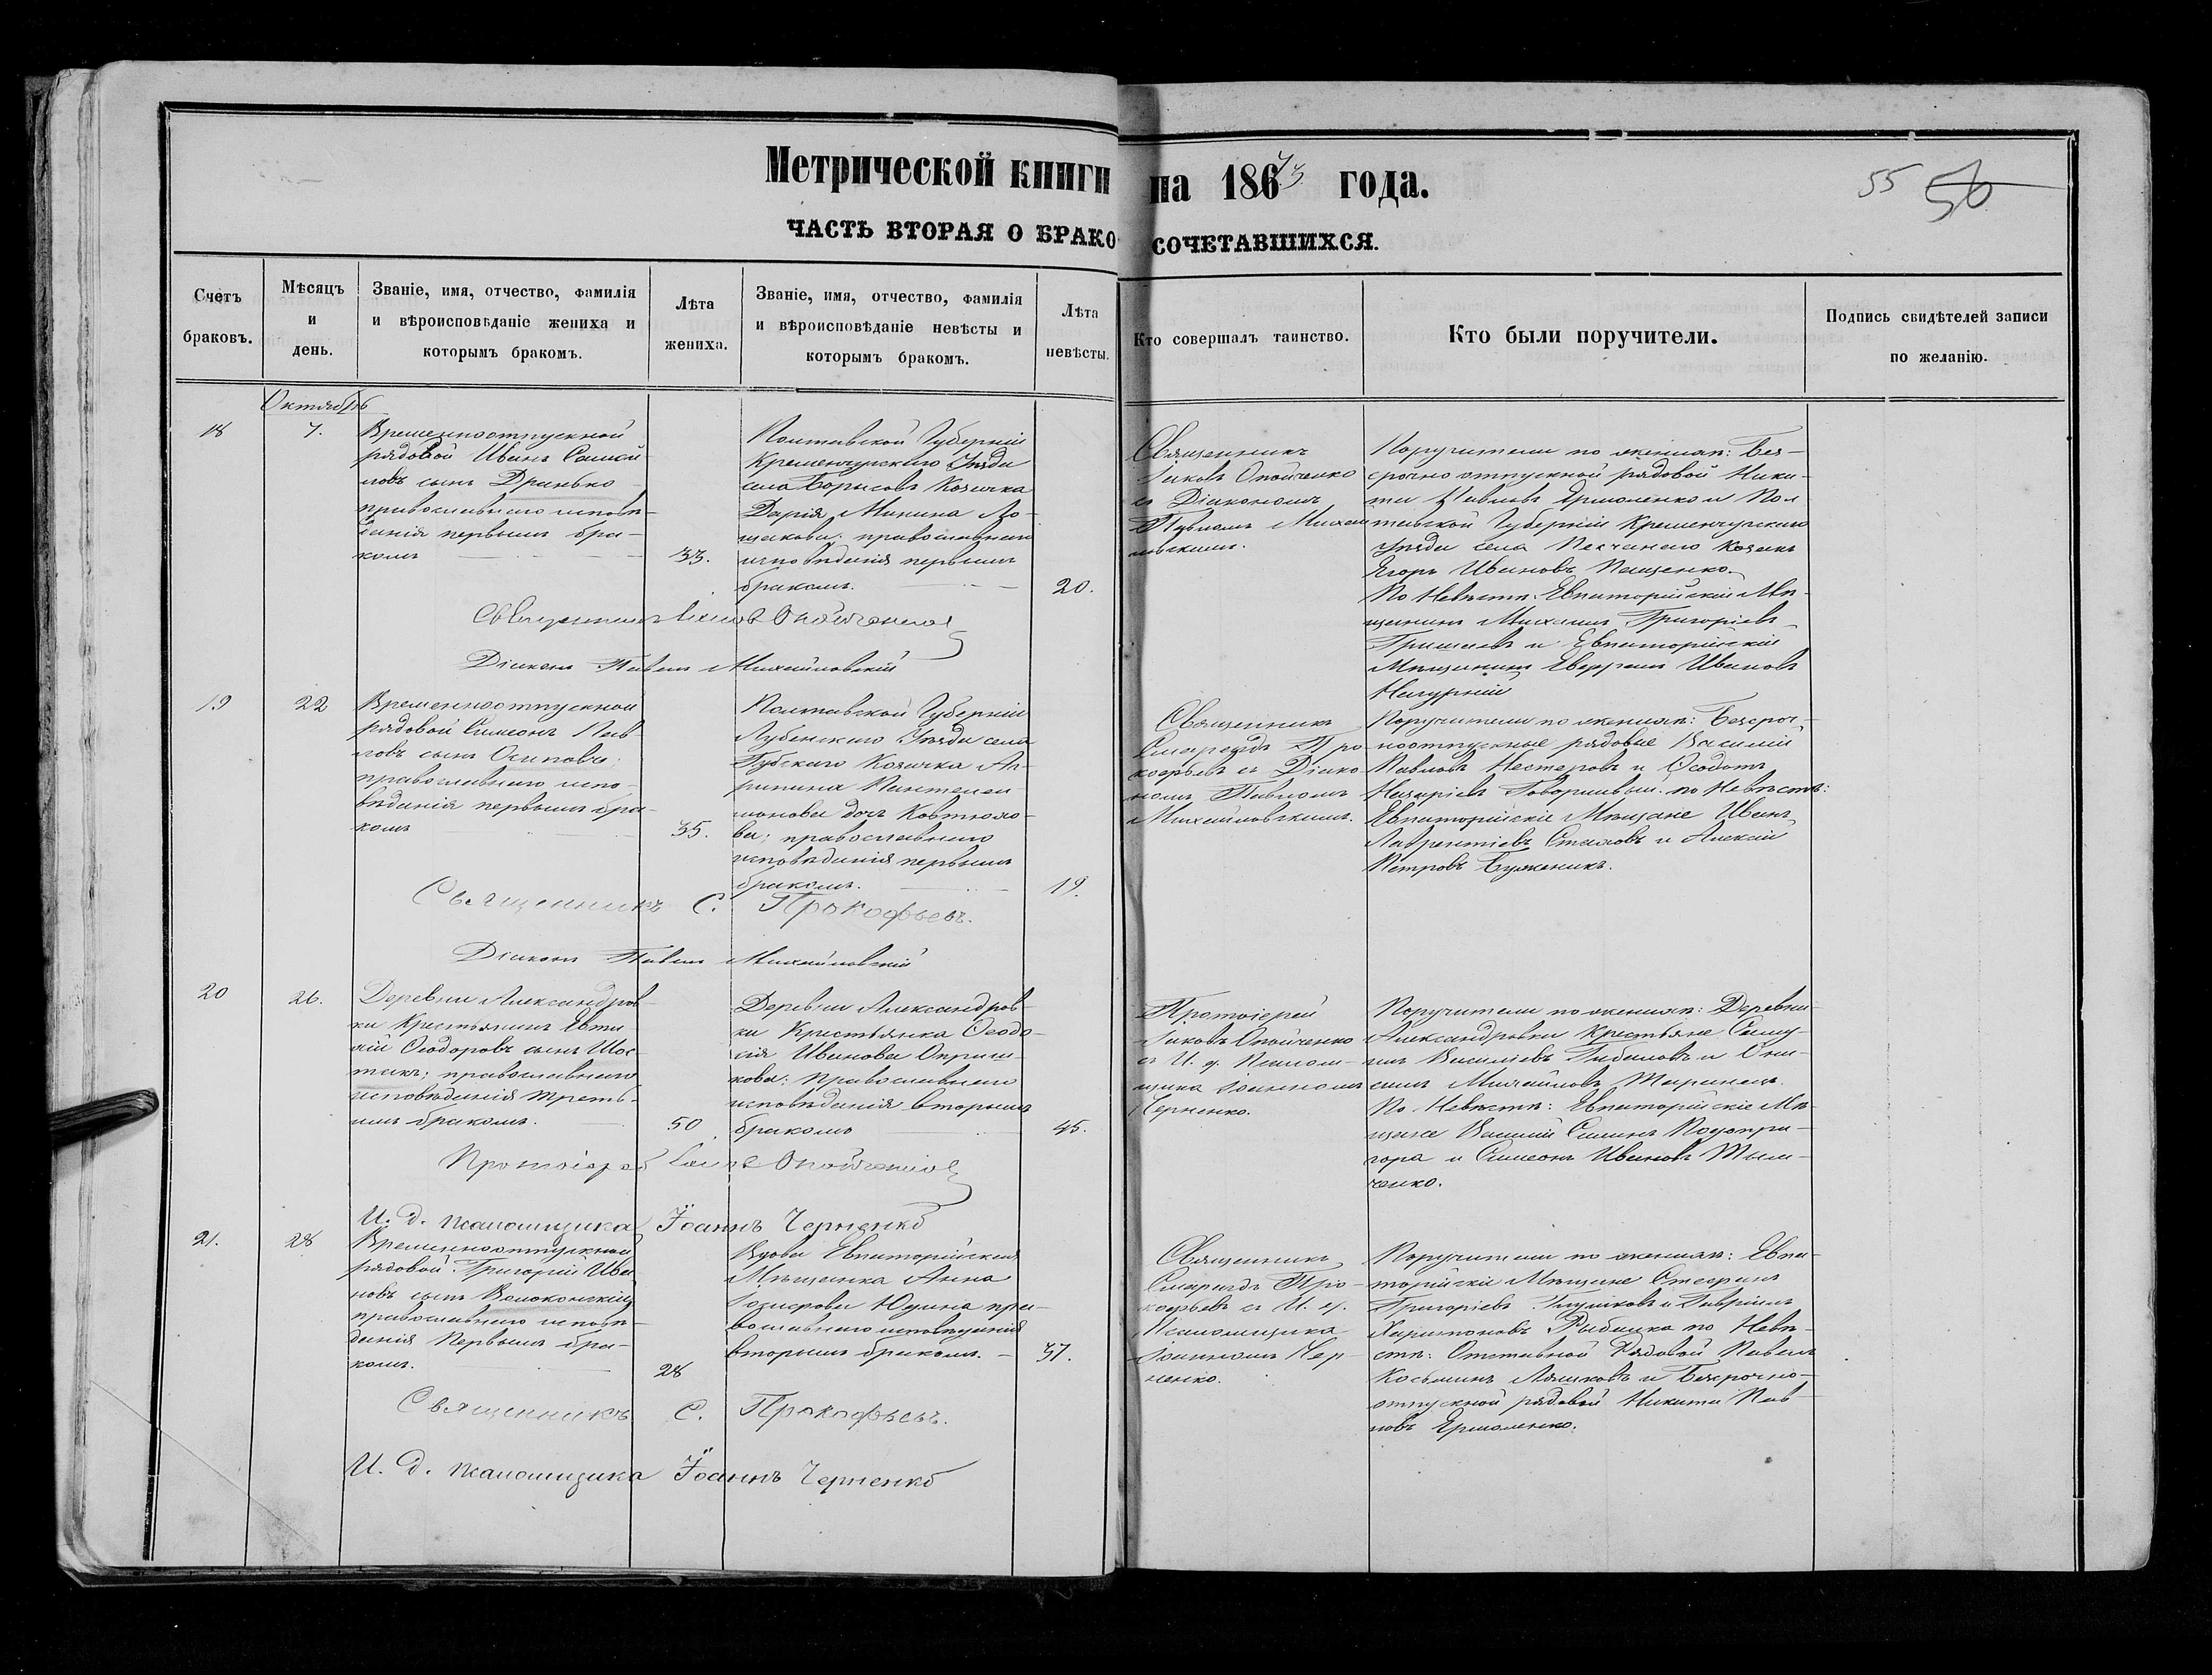 Метрической книги на 18673 года.
55 56
ЧАСТЬ ВТОРАЯ О БРАКОСОЧЕТАВШИХСЯ.
Счетъ браковъ.
Мѣсяцъ и день.
Званіе, имя, отчество, фамилія
и вѣроисповѣданіе жениха и
которымъ бракомъ.
Лѣта жениха.
Званіе, имя, отчество, фамилія
и вѣроисповѣданіе невѣсты и
которымъ бракомъ.
Лѣта невѣсты.
Кто совершалъ таинство.
Кто были поручители.
Подпись свидѣтелей записи
по желанію.
Октябрь
18
7.
Временноотпускной
рядовой Иванъ Самой
ловъ сынъ Дринько
православнаго исповѣ-
данія первымъ бра-
комъ
33.
Полтавской Губерніи
Кременчугскаго Уѣзда
села Борисовъ Козачка
Дарія Минина Ло-
щакова; православнаго
исповѣданія первымъ
бракомъ.
20.
Священникъ
Іаковъ Опойченко
съ Діакономъ
Павломъ Михай
ловскимъ.
Поручители по женихѣ: Без-
срочно отпускной рядовой Ники-
та Павловъ Ермоленко и Пол
тавской Губерніи Кременчугскаго
Уѣзда села Песчанаго Козакъ
Егоръ Ивановъ Пащенко.
По Невѣстѣ: Евпаторійскій Мѣ-
щанинъ Михаилъ Григоріевъ
и Евпаторійскій
Мѣщанинъ Ивановъ
Священникъ Іаковъ Опойченко
Діаконъ Павелъ Михайловскій
19
22
Временноотпускной
рядовой Симеонъ Пав
ловъ сынъ Осипова;
православнаго испо-
вѣданія первымъ бра-
комъ
35.
Полтавской Губерніи
Лубенскаго Уѣзда села
Губскаго Козачка Аг-
рипина Пантелеи-
монова дочь Ковтюхо-
ва; православнаго
исповѣданія первымъ
бракомъ.
19.
Священникъ
Смарагдъ Про
кофьевъ съ Діако-
номъ Павломъ
Михайловскимъ.
Поручители по женихѣ: Безсроч-
ноотпускные рядовые Василій
Павловъ Нестеровъ и Ѳеодотъ
Назаріевъ по Невѣстѣ:
Евпаторійскіе Мѣщане Иванъ
Лаврентіевъ и Алексѣй
Петровъ
Священникъ С. Прокофьевъ.
Діаконъ Павелъ Михайловскій
20
26.
Деревни Александров
ки Крестьянинъ Евти
хій Ѳеодоровъ сынъ Шос-
такъ; православнаго
исповѣданія треть-
имъ бракомъ.
50
Деревни Александров-
ки Крестьянка Ѳеодо-
сія Иванова
кова; Православнаго
исповѣданія вторымъ
бракомъ
45.
Протоіерей
Іаковъ Опойченко
съ И. д. Псалом-
щика Іоанномъ
Черненко.
Поручители по женихѣ: Деревни
Александровки Крестьяне Саму-
илъ Василіевъ и Они-
симъ Михайловъ Таранецъ.
По Невѣстѣ: Евпаторійскіе Мѣ-
щане Василій Саминъ Подопри-
гора и Симеонъ Ивановъ Тым-
ченко.
Протоіерей Іаковъ Опойченко
И. д. псаломщика Іоаннъ Черненко
21.
28
Временноотпускной
рядовой Григорій Ива
новъ сынъ Волоконскій
православнаго исповѣ-
данія Первымъ бра-
комъ.
28
Вдова Евпаторійская
Мѣщанка Анна
Іосифова Юдина пра-
вославнаго исповѣданія
вторымъ бракомъ.
37.
Священникъ
Смарагдъ Про-
кофьевъ съ И. д.
Псаломщика
Іоанномъ Чер-
ненко.
Поручители по женихѣ: Евпа-
торійскіе Мѣщане Стефанъ
Григоріевъ Глушковъ и Гавріилъ
Харитоновъ Рыбалка по Невѣ-
стѣ: Отставной Рядовой Павелъ
Косьминъ Ляшковъ и Безсрочно-
отпускной рядовой Никита Пав
ловъ Ермоленко.
Священникъ С. Прокофьевъ.
И. д. псаломщика Іоаннъ Черненко